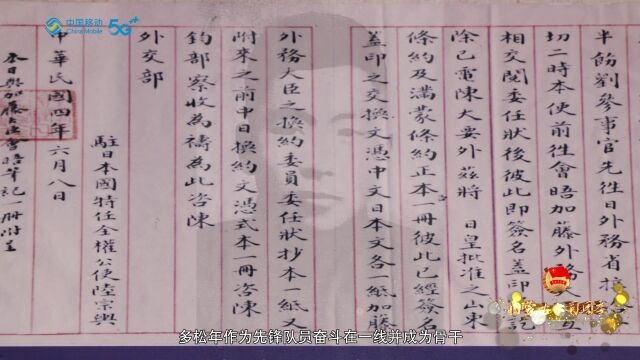 中国移动
China Mobile
5G++
半飭劉參事官先徃日外務省接洽一
切二時本使前徃會晤加藤外務
相交閱委任狀後彼此即簽名蓋印訖
除已電陳大要外茲將 日皇批准之山東
條約及滿蒙條約正本一冊彼此已經簽名
蓋印之交換文憑中文日本文各一紙加藤
外務大臣之換約委員委任狀抄本一紙又
附來之前中日換約文憑式本一冊咨陳
鈞部察收為禱為此咨陳
外交部
駐日本國特任全權公使陸宗輿
中華民國四年六月八日
本日與加藤
會晤筆記一冊附呈
多松年作为先锋队员奋斗在一线并成为骨干